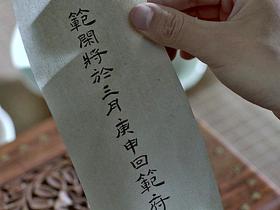 範閑將於三月庚申回範府